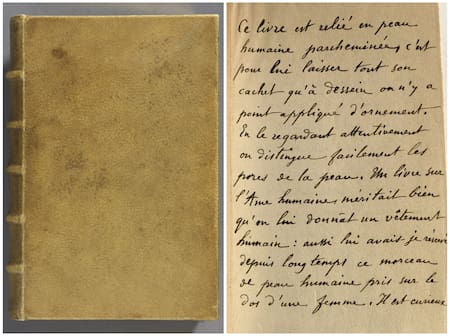 Ce livre est relié en peau
humaine parcheminée, c'est
pour lui laisser tout son
cachet qu'à dessein on n'y a
point appliqué d'ornement.
En le regardant attentivement
on distingue facilement les
pores de la peau. Un livre sur
l'Ame humaine méritait bien
qu'on lui donnât un vêtement
humain : aussi lui avais je réservé
depuis longtemps ce morceau
de peau humaine pris sur le
dos d'une femme. Il est curieux